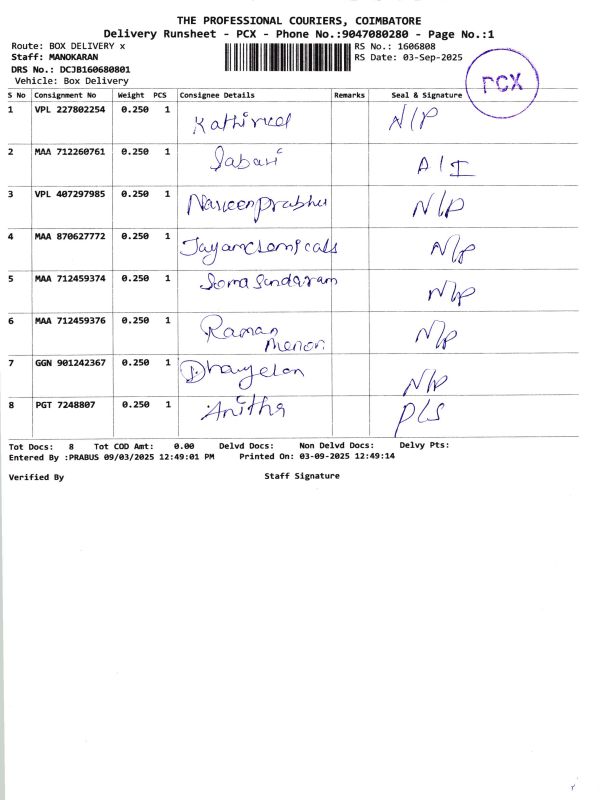 THE PROFESSIONAL COURIERS, COIMBATORE
Delivery Runsheet - PCX - Phone No.:9047080280 - Page No.:1
Route: BOX DELIVERY x RS No.: 1606808
Staff: MANOKARAN RS Date: 03-Sep-2025
DRS No.: DCJB160680801
Vehicle: Box Delivery
PCX
S No Consignment No Weight PCS Consignee Details Remarks Seal & Signature
1 VPL 227802254 0.250 1 Kathirvel N/P
2 MAA 712260761 0.250 1 Sabari A/I
3 VPL 407297985 0.250 1 Naveenprabhu N/P
4 MAA 870627772 0.250 1 Jayamchemicals N/P
5 MAA 712459374 0.250 1 Soma Sundaram N/P
6 MAA 712459376 0.250 1 Raman N/P
Menon
7 GGN 901242367 0.250 1 N/P
8 PGT 7248807 0.250 1 Anitha P/S
Tot Docs: 8 Tot COD Amt: 0.00 Delvd Docs: Non Delvd Docs: Delvy Pts:
Entered By :PRABUS 09/03/2025 12:49:01 PM Printed On: 03-09-2025 12:49:14
Verified By Staff Signature